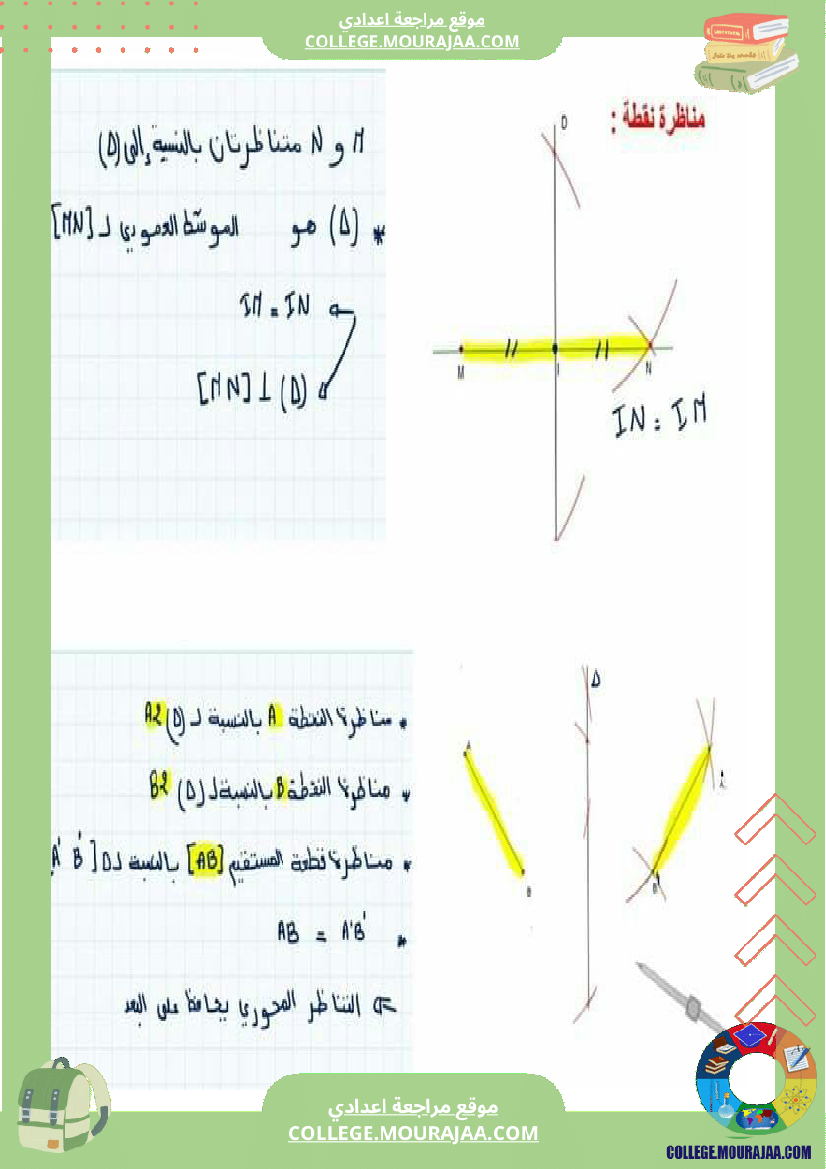 موقع مراجعة اعدادي
COLLEGE.MOURAJAA.COM
مناظرة نقطة :
D
M
I
N
IN = IM
M و N متناظرتان بالنسبة إلى (Δ)
* (Δ) هو الموسّط العمودي لـ [MN]
IM = IN
[MN] ⊥ (Δ)
Δ
A
B
B'
• مناظرة النقطة A بالنسبة لـ (Δ) A2
• مناظرة النقطة B بالنسبة لـ (Δ) B2
• مناظرة قطعة المستقيم [AB] بالنسبة لـ Δ [A' B'
• AB = A'B'
⇐ التناظر المحوري يحافظ على البعد
موقع مراجعة اعدادي
COLLEGE.MOURAJAA.COM
COLLEGE.MOURAJAA.COM